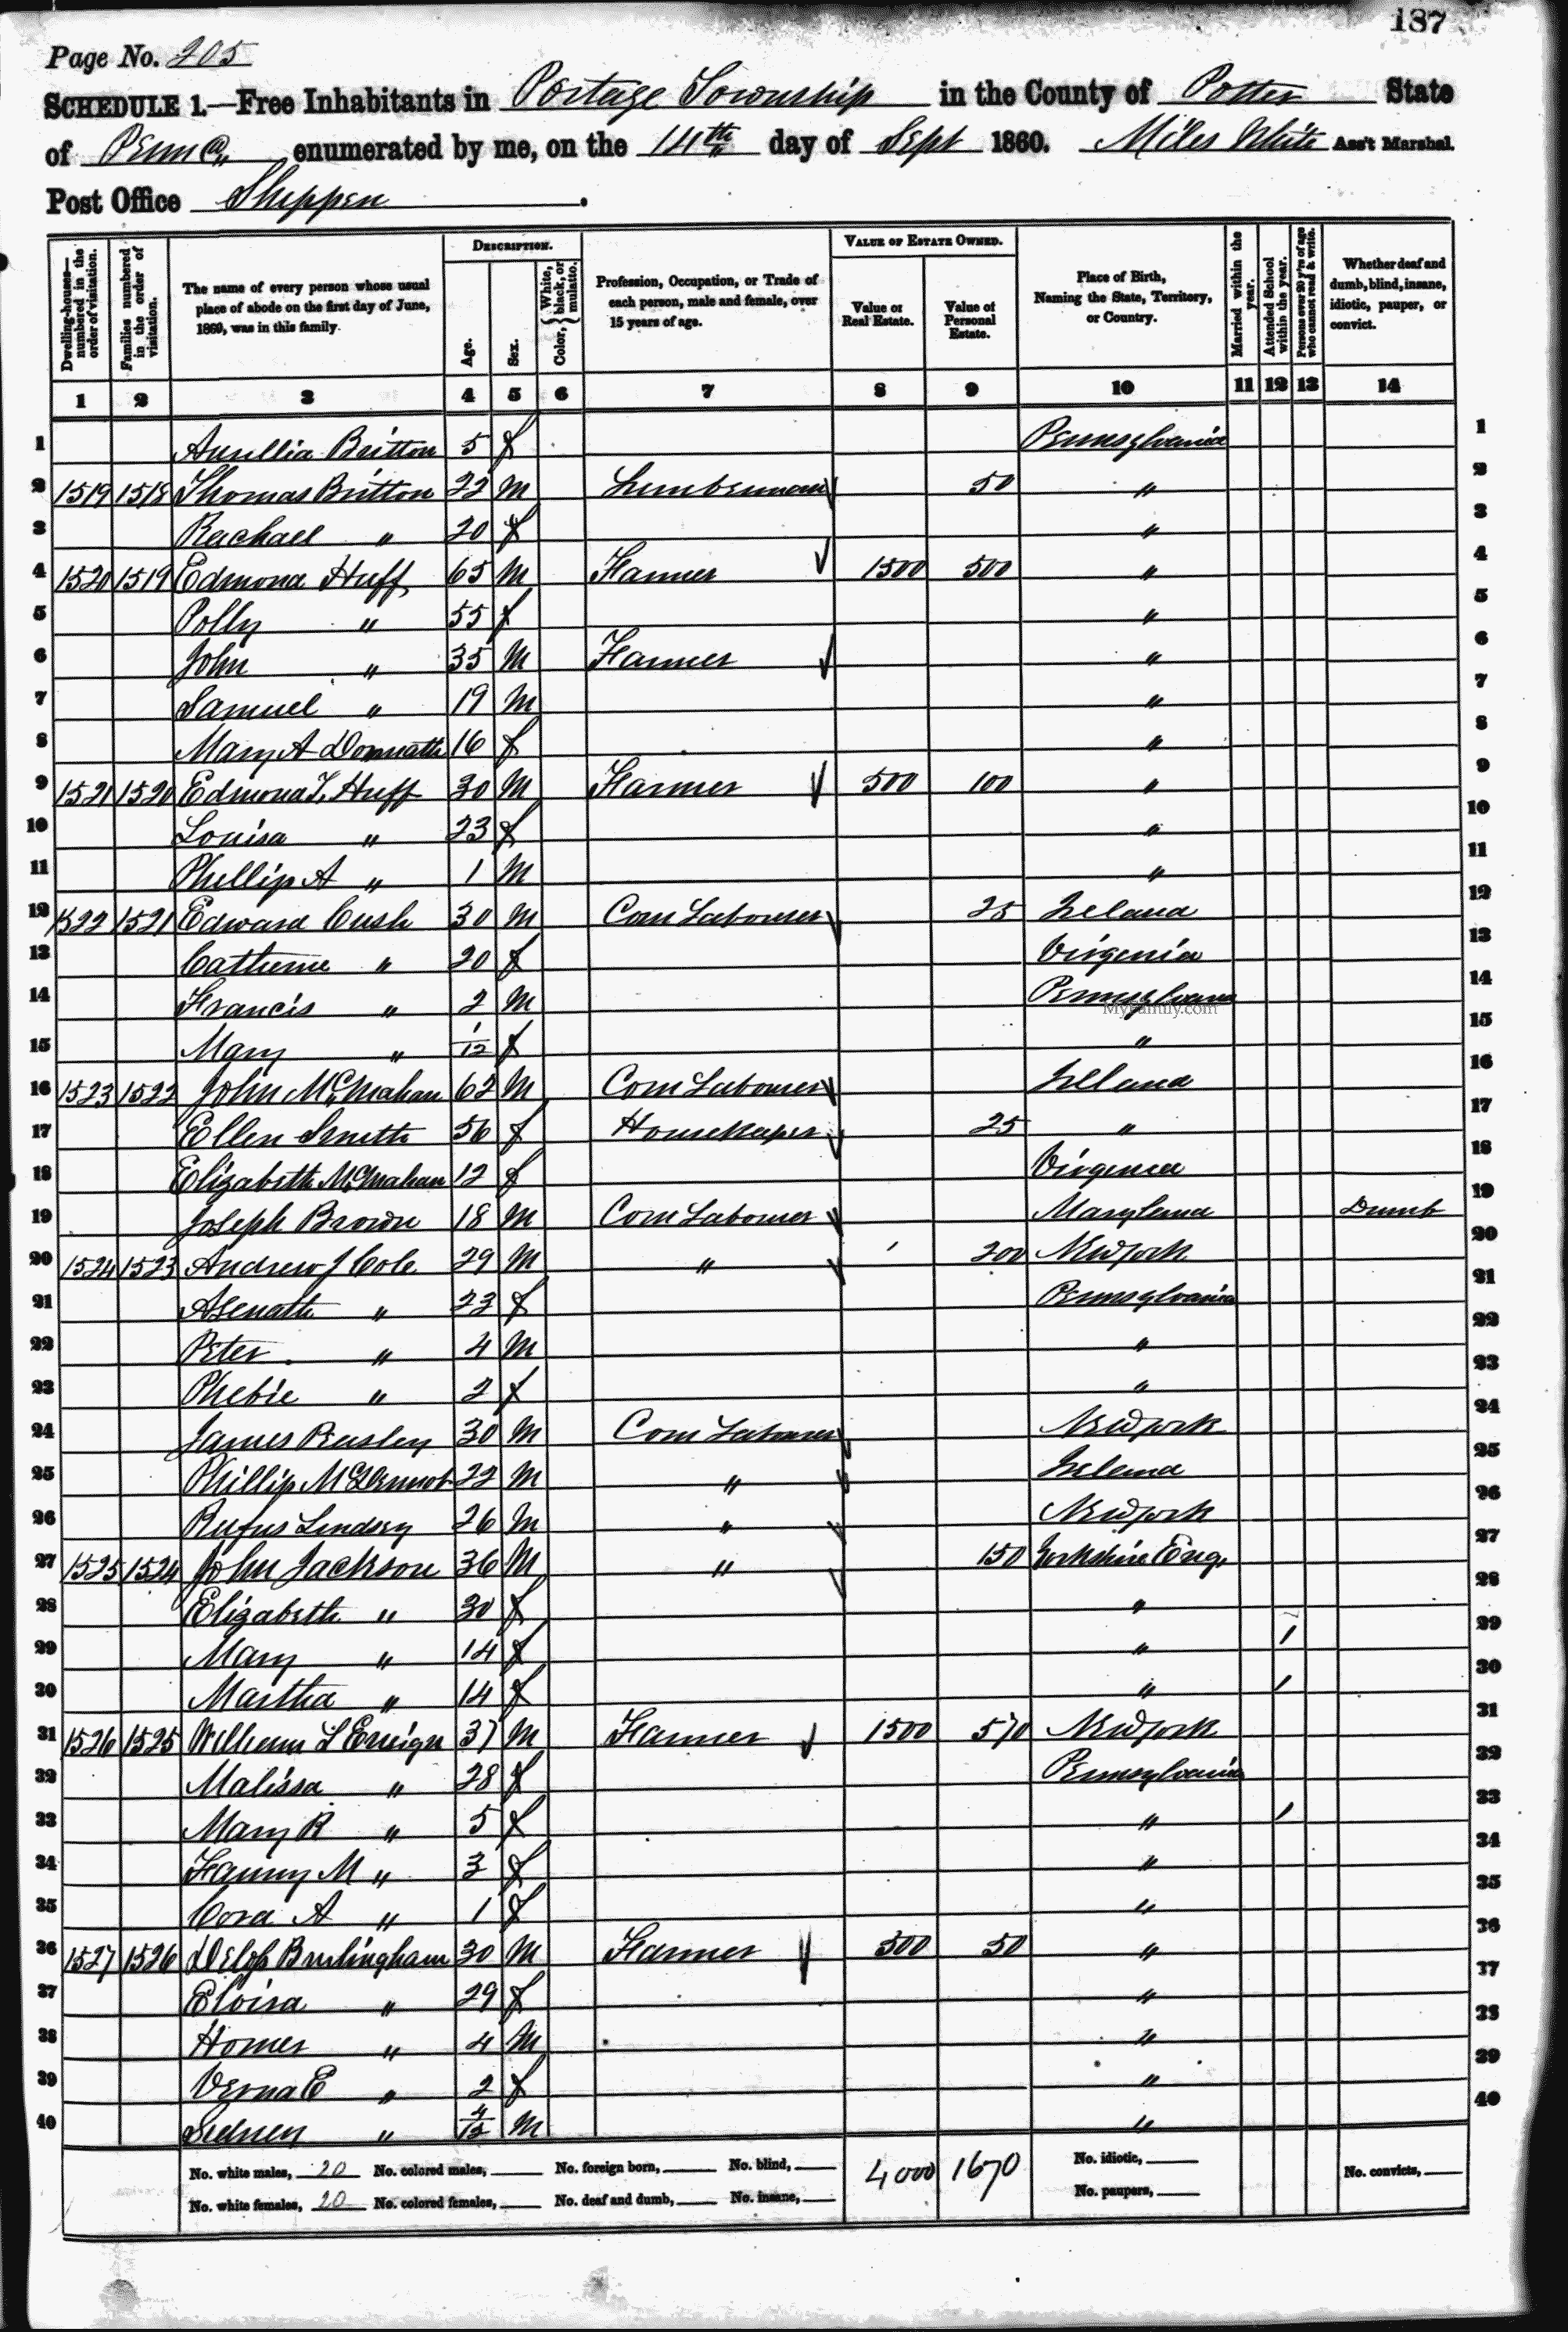 187
Page No. 205
SCHEDULE 1.—Free Inhabitants in Portage Township in the County of Potter State
of Penna enumerated by me, on the 14th day of Sept 1860. Miles White Ass't Marshal.
Post Office Shippen.
Dwelling-houses—numbered in the order of visitation. Families numbered in the order of visitation. The name of every person whose usual place of abode on the first day of June, 1860, was in this family. DESCRIPTION. Age. Sex. Color, { White, black, or mulatto. Profession, Occupation, or Trade of each person, male and female, over 15 years of age. VALUE OF ESTATE OWNED. Value of Real Estate. Value of Personal Estate. Place of Birth, Naming the State, Territory, or Country. Married within the year. Attended School within the year. Persons over 20 y'rs of age who cannot read & write. Whether deaf and dumb, blind, insane, idiotic, pauper, or convict.
1 2 3 4 5 6 7 8 9 10 11 12 13 14
1 Aurillia Britton 5 f Pennsylvania 1
2 1519 1518 Thomas Britton 22 M Lumberman 50 " 2
3 Rachael " 20 f " 3
4 1520 1519 Edmond Huff 65 M Farmer 1500 500 " 4
5 Polly " 55 f " 5
6 John " 35 M Farmer " 6
7 Samuel " 19 M " 7
8 Mary A 16 f " 8
9 1521 1520 Edmond T. Huff 30 M Farmer 500 100 " 9
10 Louisa " 23 f " 10
11 Phillip A " 1 M " 11
12 1522 1521 Edward Cush 30 M Com Labourer 25 Ireland 12
13 Catherine " 20 f Virginia 13
14 Francis " 2 M Pennsylvania 14
MyFamily.com
15 Mary " 1/12 f " 15
16 1523 1522 John McMahan 62 M Com Labourer Ireland 16
17 Ellen Smith 56 f Housekeeper 25 " 17
18 Elizabeth McMahan 12 f Virginia 18
19 Joseph Brown 18 M Com Labourer Maryland Dumb 19
20 1524 1523 Andrew J Cole 29 M " 200 New York 20
21 Asenath " 23 f Pennsylvania 21
22 Peter " 4 M " 22
23 Phebie " 2 f " 23
24 James Beasley 30 M Com Labourer New York 24
25 Phillip McDermot 22 M " Ireland 25
26 Rufus Lindsey 26 M " New York 26
27 1525 1524 John Jackson 36 M " 150 Yorkshire Eng. 27
28 Elizabeth " 30 f " 28
29 Mary " 14 f " / 29
30 Martha " 14 f " / 30
31 1526 1525 William L Ensign 37 M Farmer 1500 570 New York 31
32 Malissa " 28 f Pennsylvania 32
33 Mary R " 5 f " / 33
34 Fanny M " 3 f " 34
35 Cora A " 1 f " 35
36 1527 1526 Delos Burlingham 30 M Farmer 500 50 " 36
37 Eloisa " 29 f " 37
38 Homer " 4 M " 38
39 Verna E " 2 f " 39
40 Sidney " 4/12 M " 40
No. white males, 20 No. colored males, No. foreign born, No. blind, 4000 1670 No. idiotic, No. convicts,
No. white females, 20 No. colored females, No. deaf and dumb, No. insane, No. paupers,